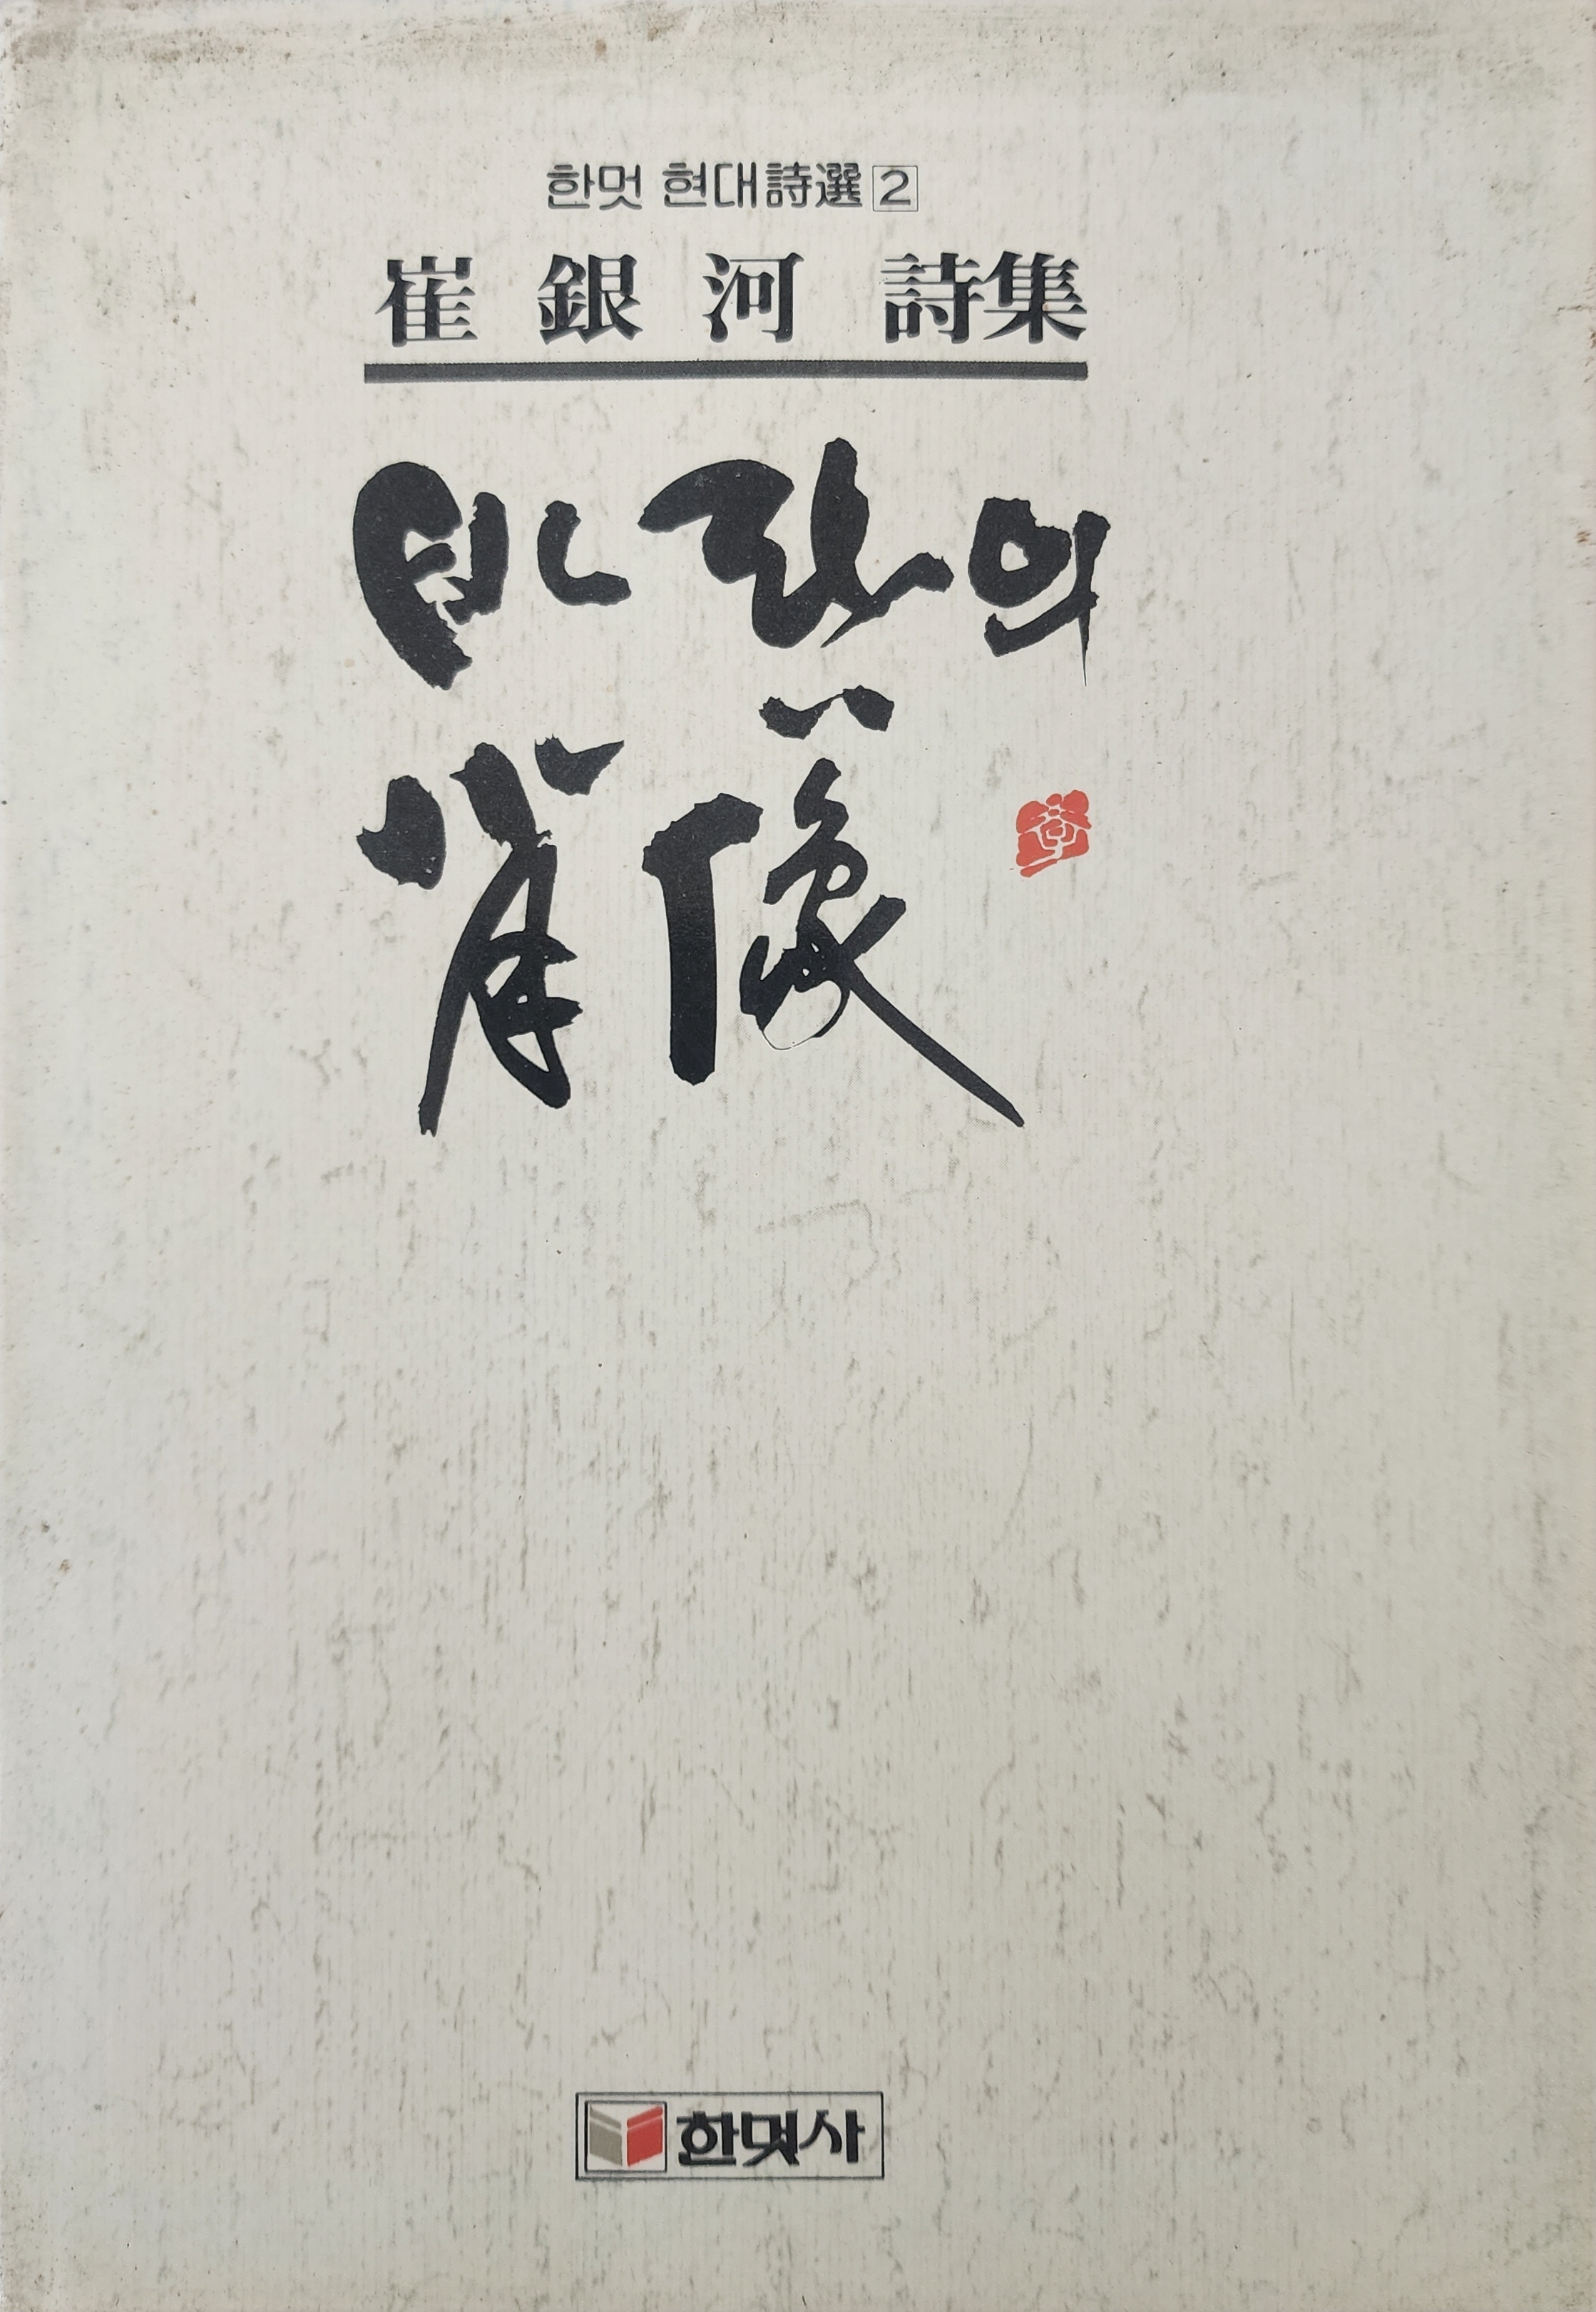 한멋 현대詩選 2
崔銀河 詩集
바람의
肖像
한멋사